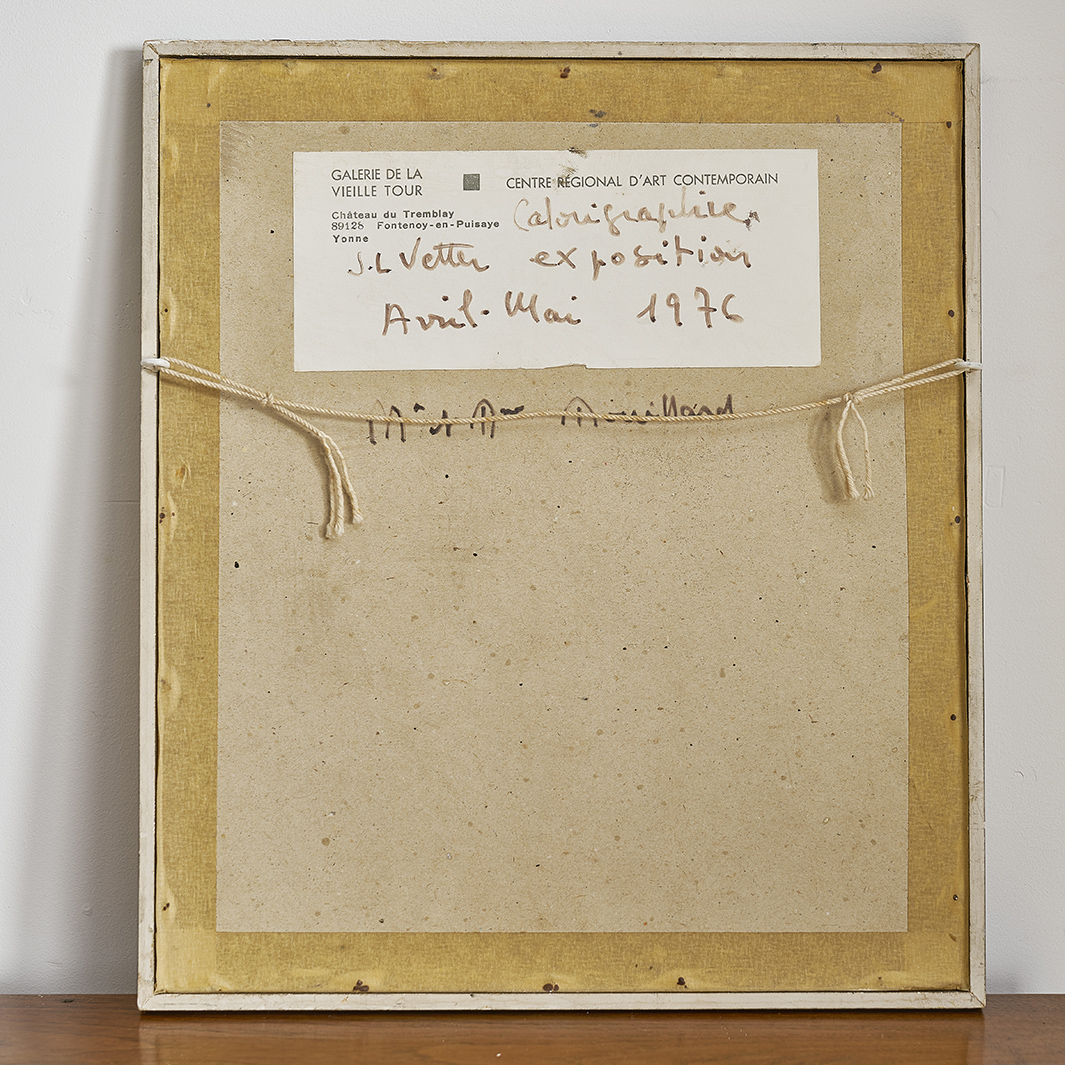 GALERIE DE LA
VIEILLE TOUR
CENTRE RÉGIONAL D'ART CONTEMPORAIN
Château du Tremblay
89128 Fontenoy-en-Puisaye
Yonne
J.L Vetter exposition
Avril - Mai 1976